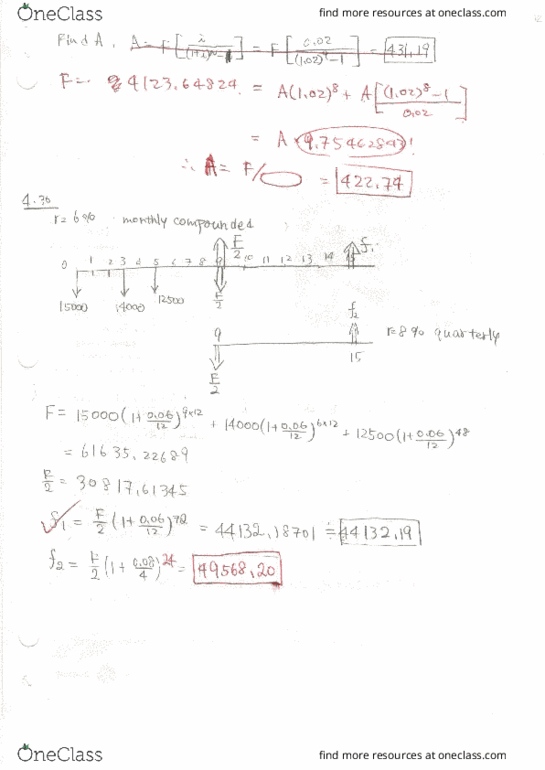 OneClass
find more resources at oneclass.com
Find A, A = F[i/((1+i)^N - 1)] = F[0.02/((1.02)^4 - 1)] = 431.19
F = 4123.64824 = A(1.02)^8 + A[((1.02)^8 - 1)/0.02]
= A × 9.75462843
∴ A = F/ = 422.74
4.30
r=6% monthly compounded
F/2 f1
0 1 2 3 4 5 6 7 8 9 10 11 12 13 14
15000 14000 12500 F/2
f2
9 15 r=8% quarterly
F/2
F = 15000(1+0.06/12)^(9×12) + 14000(1+0.06/12)^(6×12) + 12500(1+0.06/12)^48
= 61635.22689
F/2 = 30817.61345
f1 = F/2(1+0.06/12)^72 = 44132.18701 ≐ 44132.19
f2 = F/2(1+0.08/4)^24 = 49568.20
OneClass
find more resources at oneclass.com